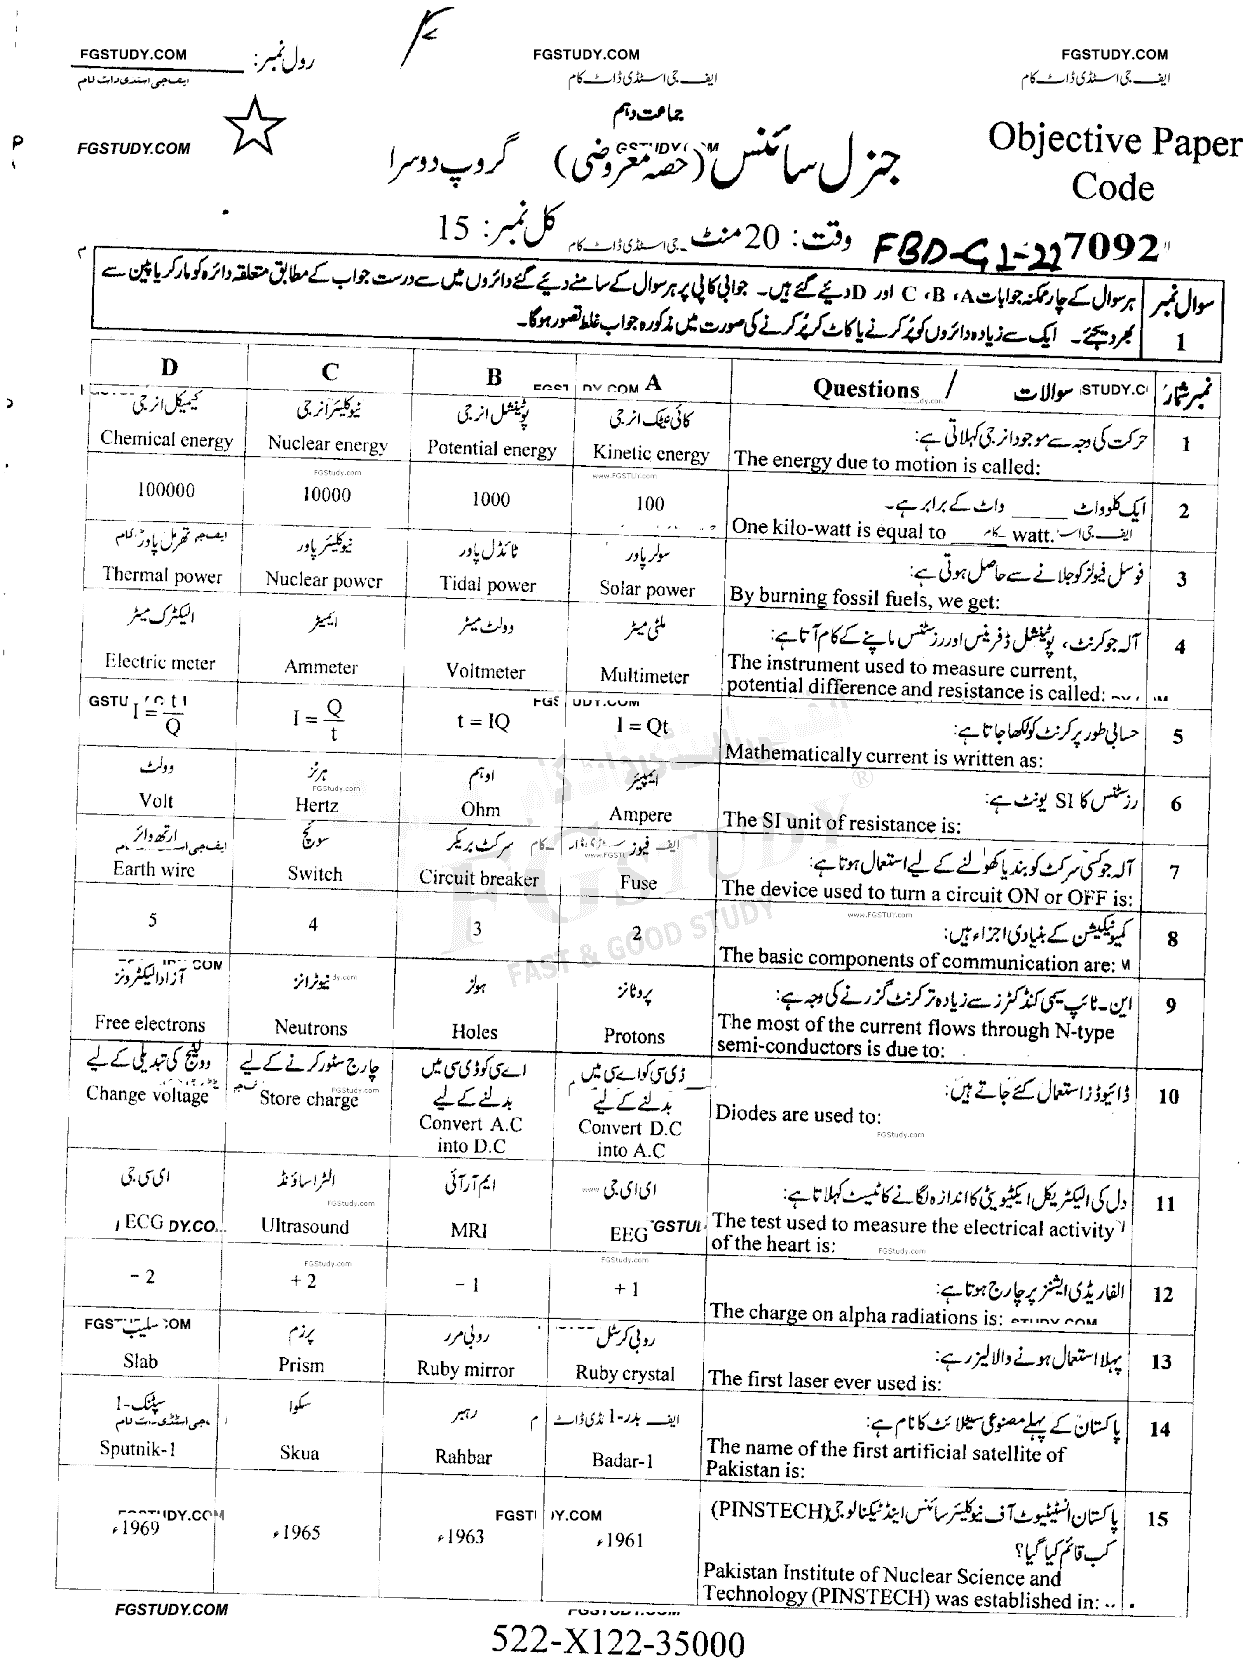 FGSTUDY.COM
رول نمبر:
FGSTUDY.COM
FGSTUDY.COM
ایف جی اسٹڈی ڈاٹ کام
ایف جی اسٹڈی ڈاٹ کام
ایف جی اسٹڈی ڈاٹ کام
جماعت دہم
FGSTUDY.COM
جنرل سائنس (حصہ معروضی) گروپ دوسرا
Objective Paper
Code
وقت: 20 منٹ
کل نمبر: 15
FBD-G1-22 7092
سوال نمبر 1
ہر سوال کے چار ممکنہ جوابات A، B، C اور D دیئے گئے ہیں۔ جوابی کاپی پر ہر سوال کے سامنے دیئے گئے دائروں میں سے درست جواب کے مطابق متعلقہ دائرہ کو مارکر یا پین سے
بھر دیجئے۔ ایک سے زیادہ دائروں کو پُر کرنے یا کاٹ کر پُر کرنے کی صورت میں مذکورہ جواب غلط تصور ہوگا۔
D C B A Questions / سوالات نمبر شمار
کیمیکل انرجی نیوکلیئر انرجی پوٹینشل انرجی کائی نیٹک انرجی حرکت کی وجہ سے موجود انرجی کہلاتی ہے: 1
Chemical energy Nuclear energy Potential energy Kinetic energy The energy due to motion is called:
100000 10000 1000 100 ایک کلو واٹ _____ واٹ کے برابر ہے۔ 2
One kilo-watt is equal to _____ watt.
تھرمل پاور نیوکلیئر پاور ٹائڈل پاور سولر پاور فوسل فیولز کو جلانے سے حاصل ہوتی ہے: 3
Thermal power Nuclear power Tidal power Solar power By burning fossil fuels, we get:
الیکٹرک میٹر ایمیٹر وولٹ میٹر ملٹی میٹر آلہ جو کرنٹ، پوٹینشل ڈفرینس اور رزسٹنس ماپنے کے کام آتا ہے: 4
Electric meter Ammeter Voltmeter Multimeter The instrument used to measure current,
potential difference and resistance is called:
I = t/Q I = Q/t t = IQ I = Qt حسابی طور پر کرنٹ کو لکھا جاتا ہے: 5
Mathematically current is written as:
وولٹ ہرٹز اوہم ایمپیئر رزسٹنس کا SI یونٹ ہے: 6
Volt Hertz Ohm Ampere The SI unit of resistance is:
ارتھ وائر سوئچ سرکٹ بریکر فیوز آلہ جو کسی سرکٹ کو بند یا کھولنے کے لیے استعمال ہوتا ہے: 7
Earth wire Switch Circuit breaker Fuse The device used to turn a circuit ON or OFF is:
5 4 3 2 کمیونیکیشن کے بنیادی اجزاء ہیں: 8
The basic components of communication are:
آزاد الیکٹرونز نیوٹرانز ہولز پروٹانز این۔ٹائپ سیمی کنڈکٹرز سے زیادہ تر کرنٹ گزرنے کی وجہ ہے: 9
Free electrons Neutrons Holes Protons The most of the current flows through N-type
semi-conductors is due to:
وولٹیج کی تبدیلی کے لیے چارج سٹور کرنے کے لیے اے سی کو ڈی سی میں بدلنے کے لیے ڈی سی کو اے سی میں بدلنے کے لیے ڈائیوڈز استعمال کئے جاتے ہیں: 10
Change voltage Store charge Convert A.C into D.C Convert D.C into A.C Diodes are used to:
ای سی جی الٹراساؤنڈ ایم آر آئی ای ای جی دل کی الیکٹریکل ایکٹیویٹی کا اندازہ لگانے کا ٹیسٹ کہلاتا ہے: 11
ECG Ultrasound MRI EEG The test used to measure the electrical activity
of the heart is:
− 2 + 2 − 1 + 1 الفا ریڈی ایشنز پر چارج ہوتا ہے: 12
The charge on alpha radiations is:
سلیب پرزم روبی مرر روبی کرسٹل پہلا استعمال ہونے والا لیزر ہے: 13
Slab Prism Ruby mirror Ruby crystal The first laser ever used is:
سپٹنک-1 سکوا رہبر بدر-1 پاکستان کے پہلے مصنوعی سیٹلائٹ کا نام ہے: 14
Sputnik-1 Skua Rahbar Badar-1 The name of the first artificial satellite of
Pakistan is:
1969ء 1965ء 1963ء 1961ء پاکستان انسٹیٹیوٹ آف نیوکلیئر سائنس اینڈ ٹیکنالوجی (PINSTECH) 15
کب قائم کیا گیا؟
Pakistan Institute of Nuclear Science and
Technology (PINSTECH) was established in:
FGSTUDY.COM
522-X122-35000
FGSTUDY
FAST & GOOD STUDY